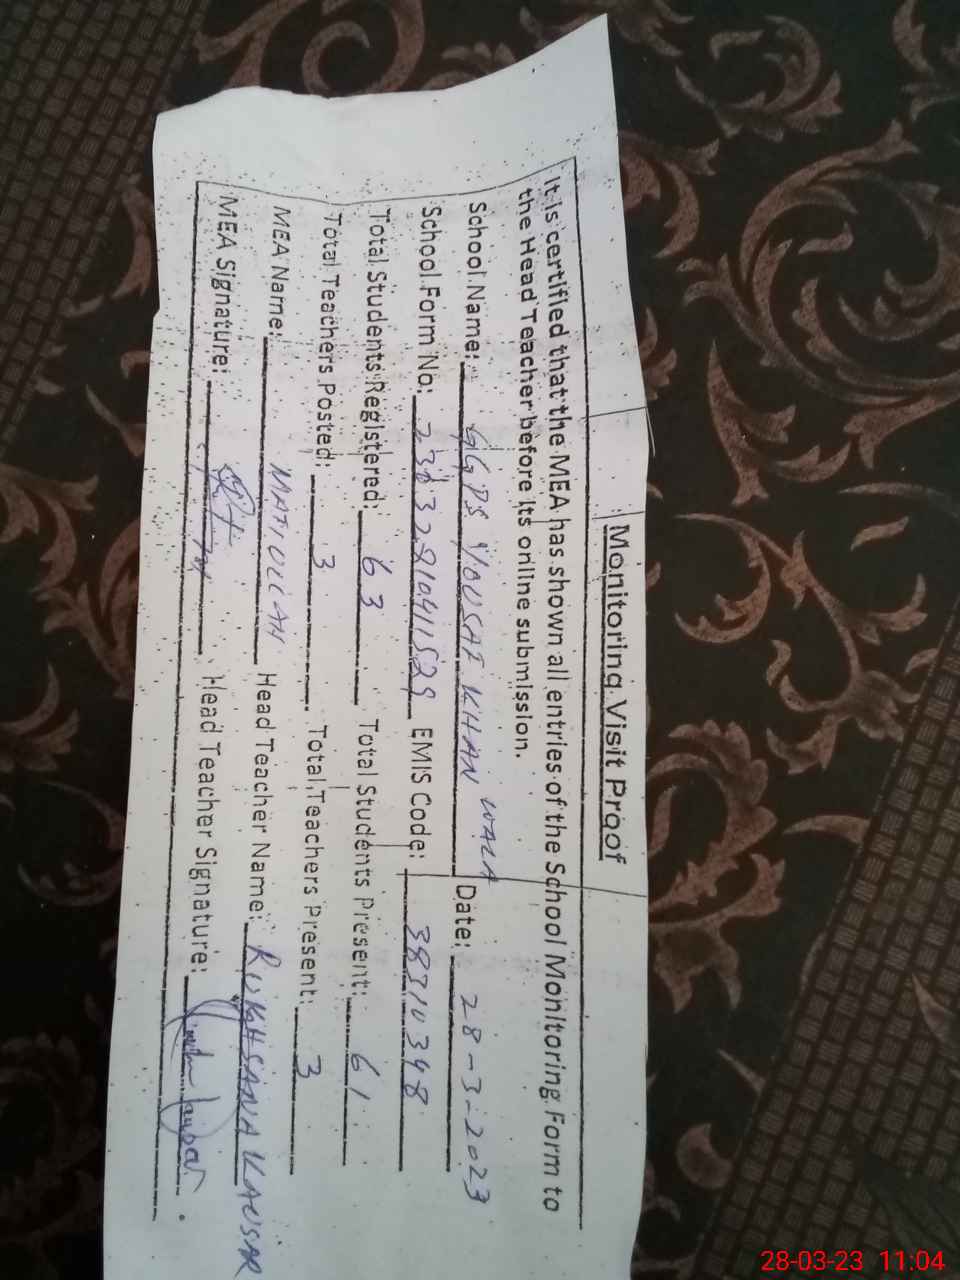 Monitoring Visit Proof
It is certified that the MEA has shown all entries of the School Monitoring Form to
the Head Teacher before its online submission.
School Name: GGPS YOUSAF KHAN WALA Date: 28-3-2023
School Form No: EMIS Code: 38310348
Total Students Registered: 63 Total Students Present: 61
Total Teachers Posted: 3 Total Teachers Present: 3
MEA Name: MATIULLAH Head Teacher Name: RUKHSANA KAUSAR
MEA Signature: Head Teacher Signature:
28-03-23 11:04